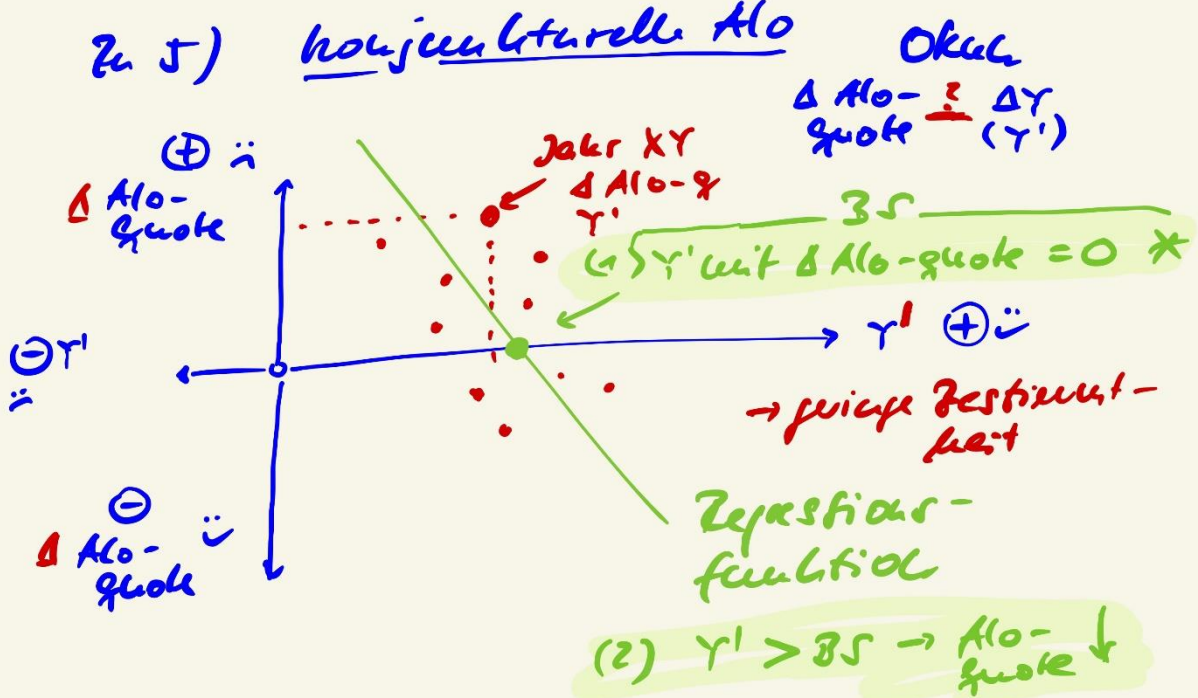 Zu 5) konjunkturelle Alo
Okun
Δ Alo-quote ? ΔY
(Y')
⊕ :(
Δ Alo-
quote
Jahr XY
Δ Alo-q
Y'
BS
(1) Y' mit Δ Alo-quote = 0 *
Y' ⊕ :)
⊖ Y'
:(
→ geringe Bestimmt-
heit
⊖
Δ Alo-
quote :)
Regressions-
funktion
(2) Y' > BS → Alo-
quote ↓